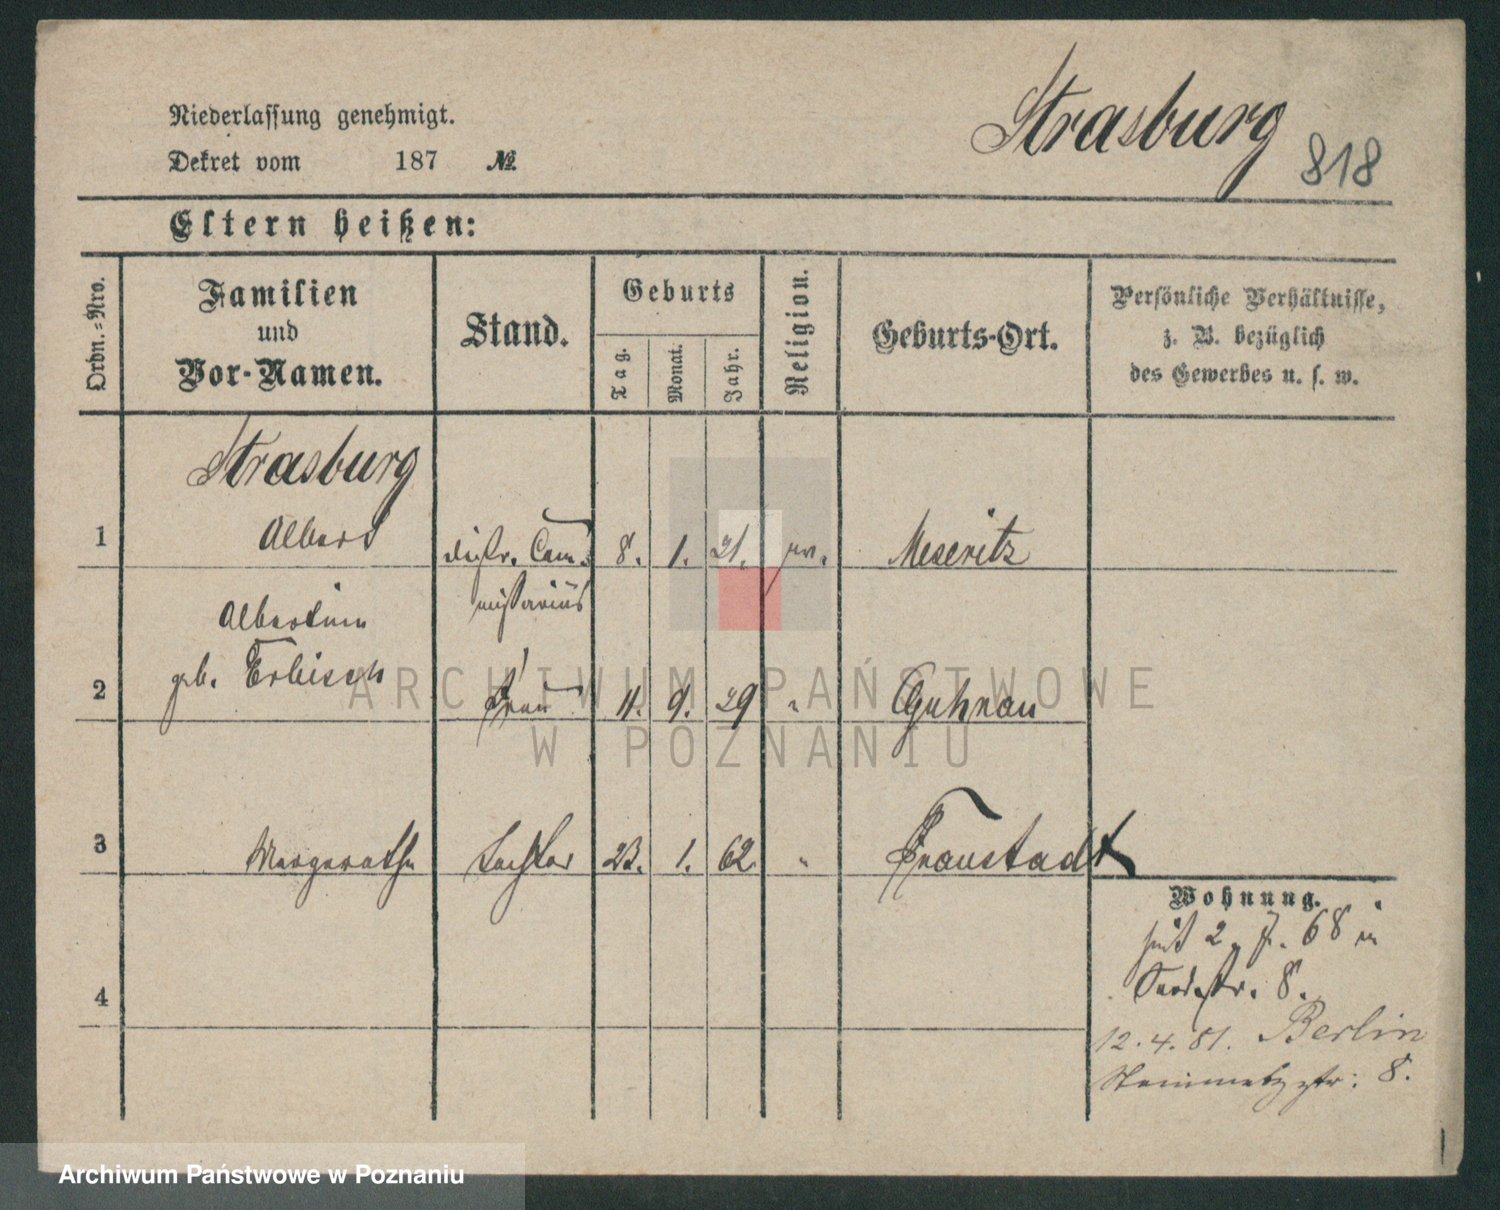 Strasburg
818
Niederlassung genehmigt.
Dekret vom 187 №
Eltern heißen:
Ordn.=Nro.
Familien
und
Vor-Namen.
Stand.
Geburts
Tag.
Monat.
Jahr.
Religion.
Geburts-Ort.
Persönliche Verhältnisse,
z. B. bezüglich
des Gewerbes u. s. w.
Strasburg
1 Albert distr. Com- 8. 1. 21. Meseritz
missarius
Albertine
2 geb. Frau 11. 9. 29 " Guhrau
3 Margarethe Tochter 23. 1. 62. " Fraustadt
Wohnung.
seit 2. 68 in
str. 8.
4
12. 4. 81. Berlin
Steinmetzstr: 8.
ARCHIWUM PAŃSTWOWE
W POZNANIU
Archiwum Państwowe w Poznaniu